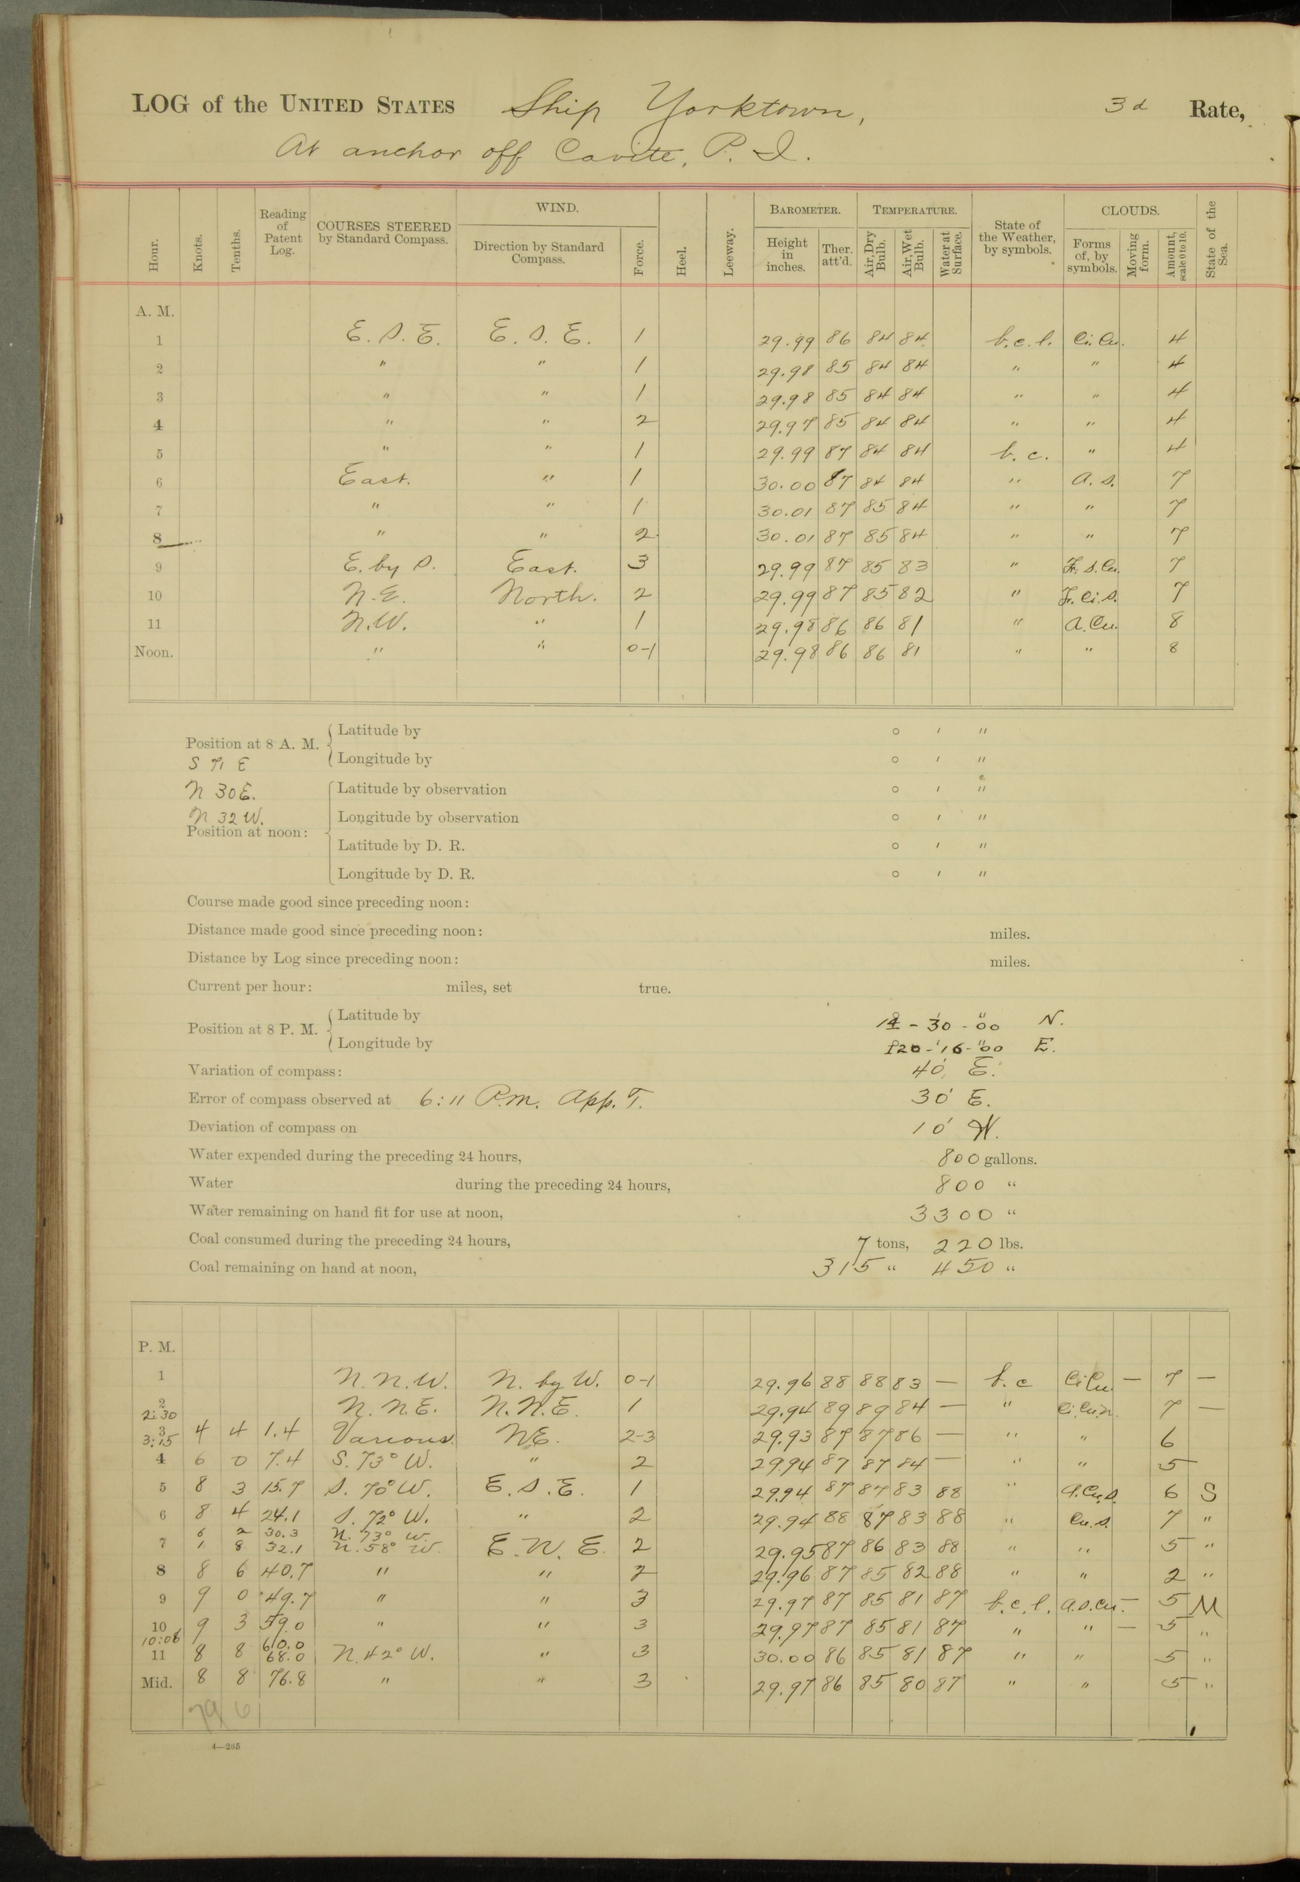 LOG of the UNITED STATES Ship Yorktown, 3d Rate,
At anchor off Cavite, P. I.
Hour. Knots. Tenths. Reading of Patent Log. COURSES STEERED by Standard Compass. WIND. Direction by Standard Compass. Force. Heel. Leeway. BAROMETER. Height in inches. Ther. att'd. TEMPERATURE. Air, Dry Bulb. Air, Wet Bulb. Water at Surface. State of the Weather, by symbols. CLOUDS. Forms of, by symbols. Moving form. Amount, scale 0 to 10. State of the Sea.
A. M.
1 E. S. E. E. S. E. 1 29.99 86 84 84 b.c.l. Ci.Cu. 4
2 " " 1 29.98 85 84 84 " " 4
3 " " 1 29.98 85 84 84 " " 4
4 " " 2 29.97 85 84 84 " " 4
5 " " 1 29.99 87 84 84 b.c. " 4
6 East. " 1 30.00 87 84 84 " A.S. 7
7 " " 1 30.01 87 85 84 " " 7
8 " " 2 30.01 87 85 84 " " 7
9 E. by S. East. 3 29.99 87 85 83 " Fr.S.Cu. 7
10 N.E. North. 2 29.99 87 85 82 " Fr.Ci.S. 7
11 N.W. " 1 29.98 86 86 81 " A.Cu. 8
Noon. " " 0-1 29.98 86 86 81 " " 8
Position at 8 A. M. Latitude by ° ' "
Longitude by ° ' "
S 71 E
N 30E. Latitude by observation ° ' "
N 32 W. Longitude by observation ° ' "
Position at noon:
Latitude by D. R. ° ' "
Longitude by D. R. ° ' "
Course made good since preceding noon:
Distance made good since preceding noon: miles.
Distance by Log since preceding noon: miles.
Current per hour: miles, set true.
Position at 8 P. M. Latitude by 14 - 30 - 00 N.
Longitude by 120 - 16 - 00 E.
Variation of compass: 40' E.
Error of compass observed at 6:11 P.m. App. T. 30' E.
Deviation of compass on 10' W.
Water expended during the preceding 24 hours, 800 gallons.
Water during the preceding 24 hours, 800 "
Water remaining on hand fit for use at noon, 3300 "
Coal consumed during the preceding 24 hours, 7 tons, 220 lbs.
Coal remaining on hand at noon, 315 " 450 "
P. M.
1 N. N. W. N. by W. 0-1 29.96 88 88 83 — b.c Ci.Cu. — 7 —
2 N. N. E. N. N. E. 1 29.94 89 89 84 — " Ci.Cu.N. 7 —
2:30
3 4 4 1.4 Various. NE. 2-3 29.93 87 87 86 — " " 6
3:15
4 6 0 7.4 S. 73° W. " 2 29.94 87 87 84 — " " 5
5 8 3 15.7 S. 70° W. E. S. E. 1 29.94 87 87 83 88 " A.Cu.S. 6 S
6 8 4 24.1 S. 72° W. " 2 29.94 88 87 83 88 " Cu.S. 7 "
6 2 30.3 N. 73° W.
7 1 8 32.1 N. 58° W. E. N. E. 2 29.95 87 86 83 88 " " 5 "
8 8 6 40.7 " " 2 29.96 87 85 82 88 " " 2 "
9 9 0 49.7 " " 3 29.97 87 85 81 87 b.c.l. A.S.Cu. — 5 M
10 9 3 59.0 " " 3 29.97 87 85 81 87 " " — 5 "
10:06 60.0
11 8 8 68.0 N. 42° W. " 3 30.00 86 85 81 87 " " 5 "
Mid. 8 8 76.8 " " 3 29.97 86 85 80 87 " " 5 "
79 6
4—265